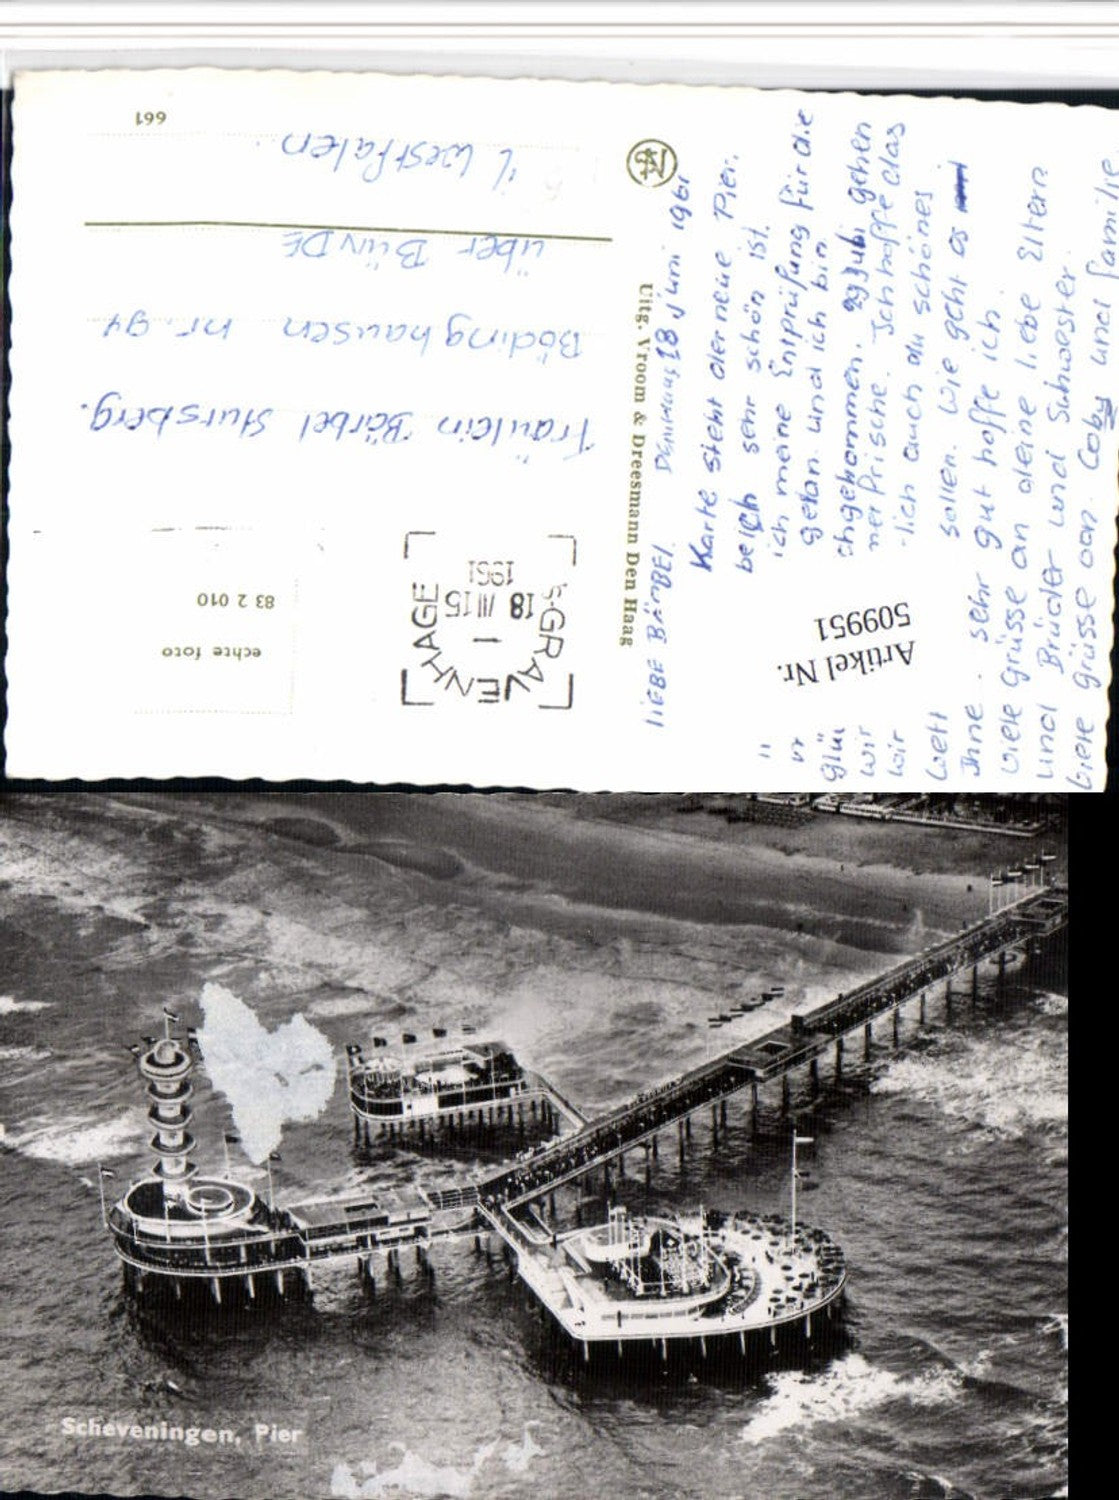 661
i/ Westfalen
über BünDE
Bödinghausen nr. 94
Fräulein Bärbel Stursberg.
83 2 010
echte foto
's-GRAVENHAGE
18 III 15
1961
Uitg. Vroom & Dreesmann Den Haag
Artikel Nr.
509951
DenHaag 18 Juni 1961
liEBE BÄRBEL
Karte steht der neue Pier.
sehr schön ist.
ich meine Entprüfung für die
getan. und ich bin
gehen
Ich hoffe das
lich auch du schönes
Wett sollen. Wie geht es
Ihne. sehr gut hoffe ich.
Viele Grüsse an deine liebe Eltern
und Brüder und Schwester.
Viele Grüsse van. Coby und familie
Scheveningen, Pier